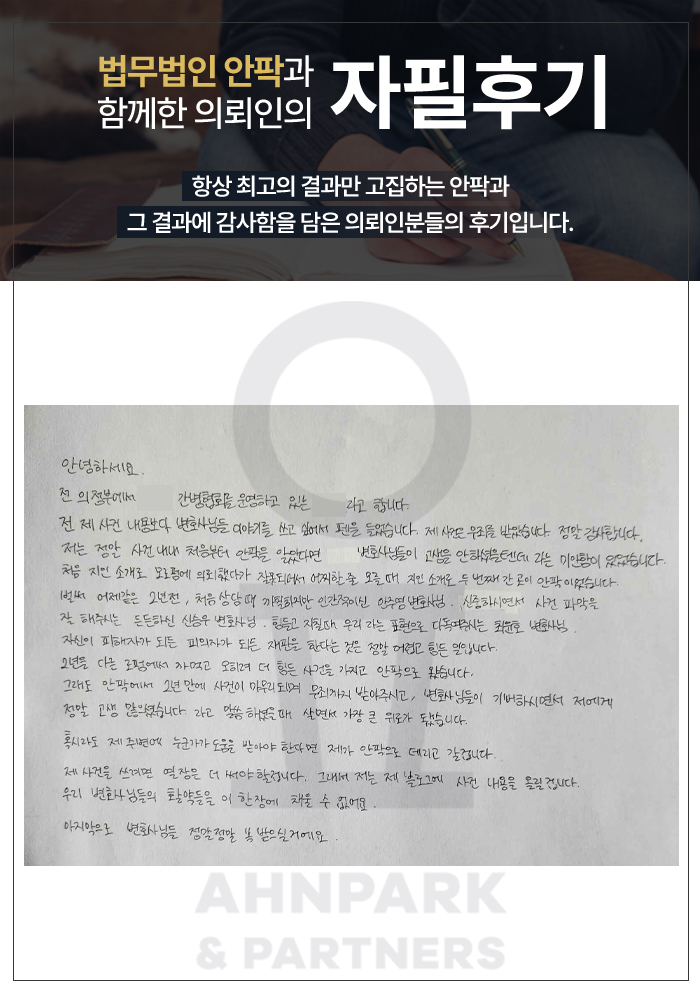 법무법인 안팍과
함께한 의뢰인의
자필후기
항상 최고의 결과만 고집하는 안팍과
그 결과에 감사함을 담은 의뢰인분들의 후기입니다.
안녕하세요.
전 의정부에서 간병협회를 운영하고 있는 라고 합니다.
전 제 사건 내용보다 변호사님들 이야기를 쓰고 싶어서 펜을 들었습니다. 제 사건은 무죄를 받았습니다 정말 감사합니다.
저는 정말 사건 내내 처음부터 안팍을 알았다면 변호사님들이 고생을 안하셨을텐데 라는 미안함이 있었습니다.
처음 지인 소개로 모로펌에 의뢰했다가 잘못되어서 어찌할 줄 모를 때 지인 소개로 두 번째 간 곳이 안팍이었습니다.
벌써 어제같은 2년전, 처음 상담 때 까칠하지만 인간적이신 안주영 변호사님. 신중하시면서 사건 파악을
잘 해주시는 든든하신 신승우 변호사님. 힘들고 지칠때 우리 라는 표현으로 다독여주시는 변호사님.
자신이 피해자가 되든 피의자가 되든 재판을 한다는 것은 정말 어렵고 힘든 일입니다.
2년을 다른 로펌에서 까먹고 오히려 더 힘든 사건을 가지고 안팍으로 왔습니다.
그래도 안팍에서 2년만에 사건이 마무리되며 무죄까지 받아주시고, 변호사님들이 기뻐하시면서 저에게
정말 고생 많으셨습니다 라고 말씀하셨을때 살면서 가장 큰 위로가 됐습니다.
혹시라도 제 주변에 누군가가 도움을 받아야 한다면 제가 안팍으로 데리고 갈겁니다.
제 사건을 쓰려면 열장은 더 써야 할겁니다. 그래서 저는 제 블로그에 사건 내용을 올릴겁니다.
우리 변호사님들의 활약들을 이 한장에 채울 수 없어요.
마지막으로 변호사님들 정말정말 복 받으실거에요.
AHNPARK
& PARTNERS